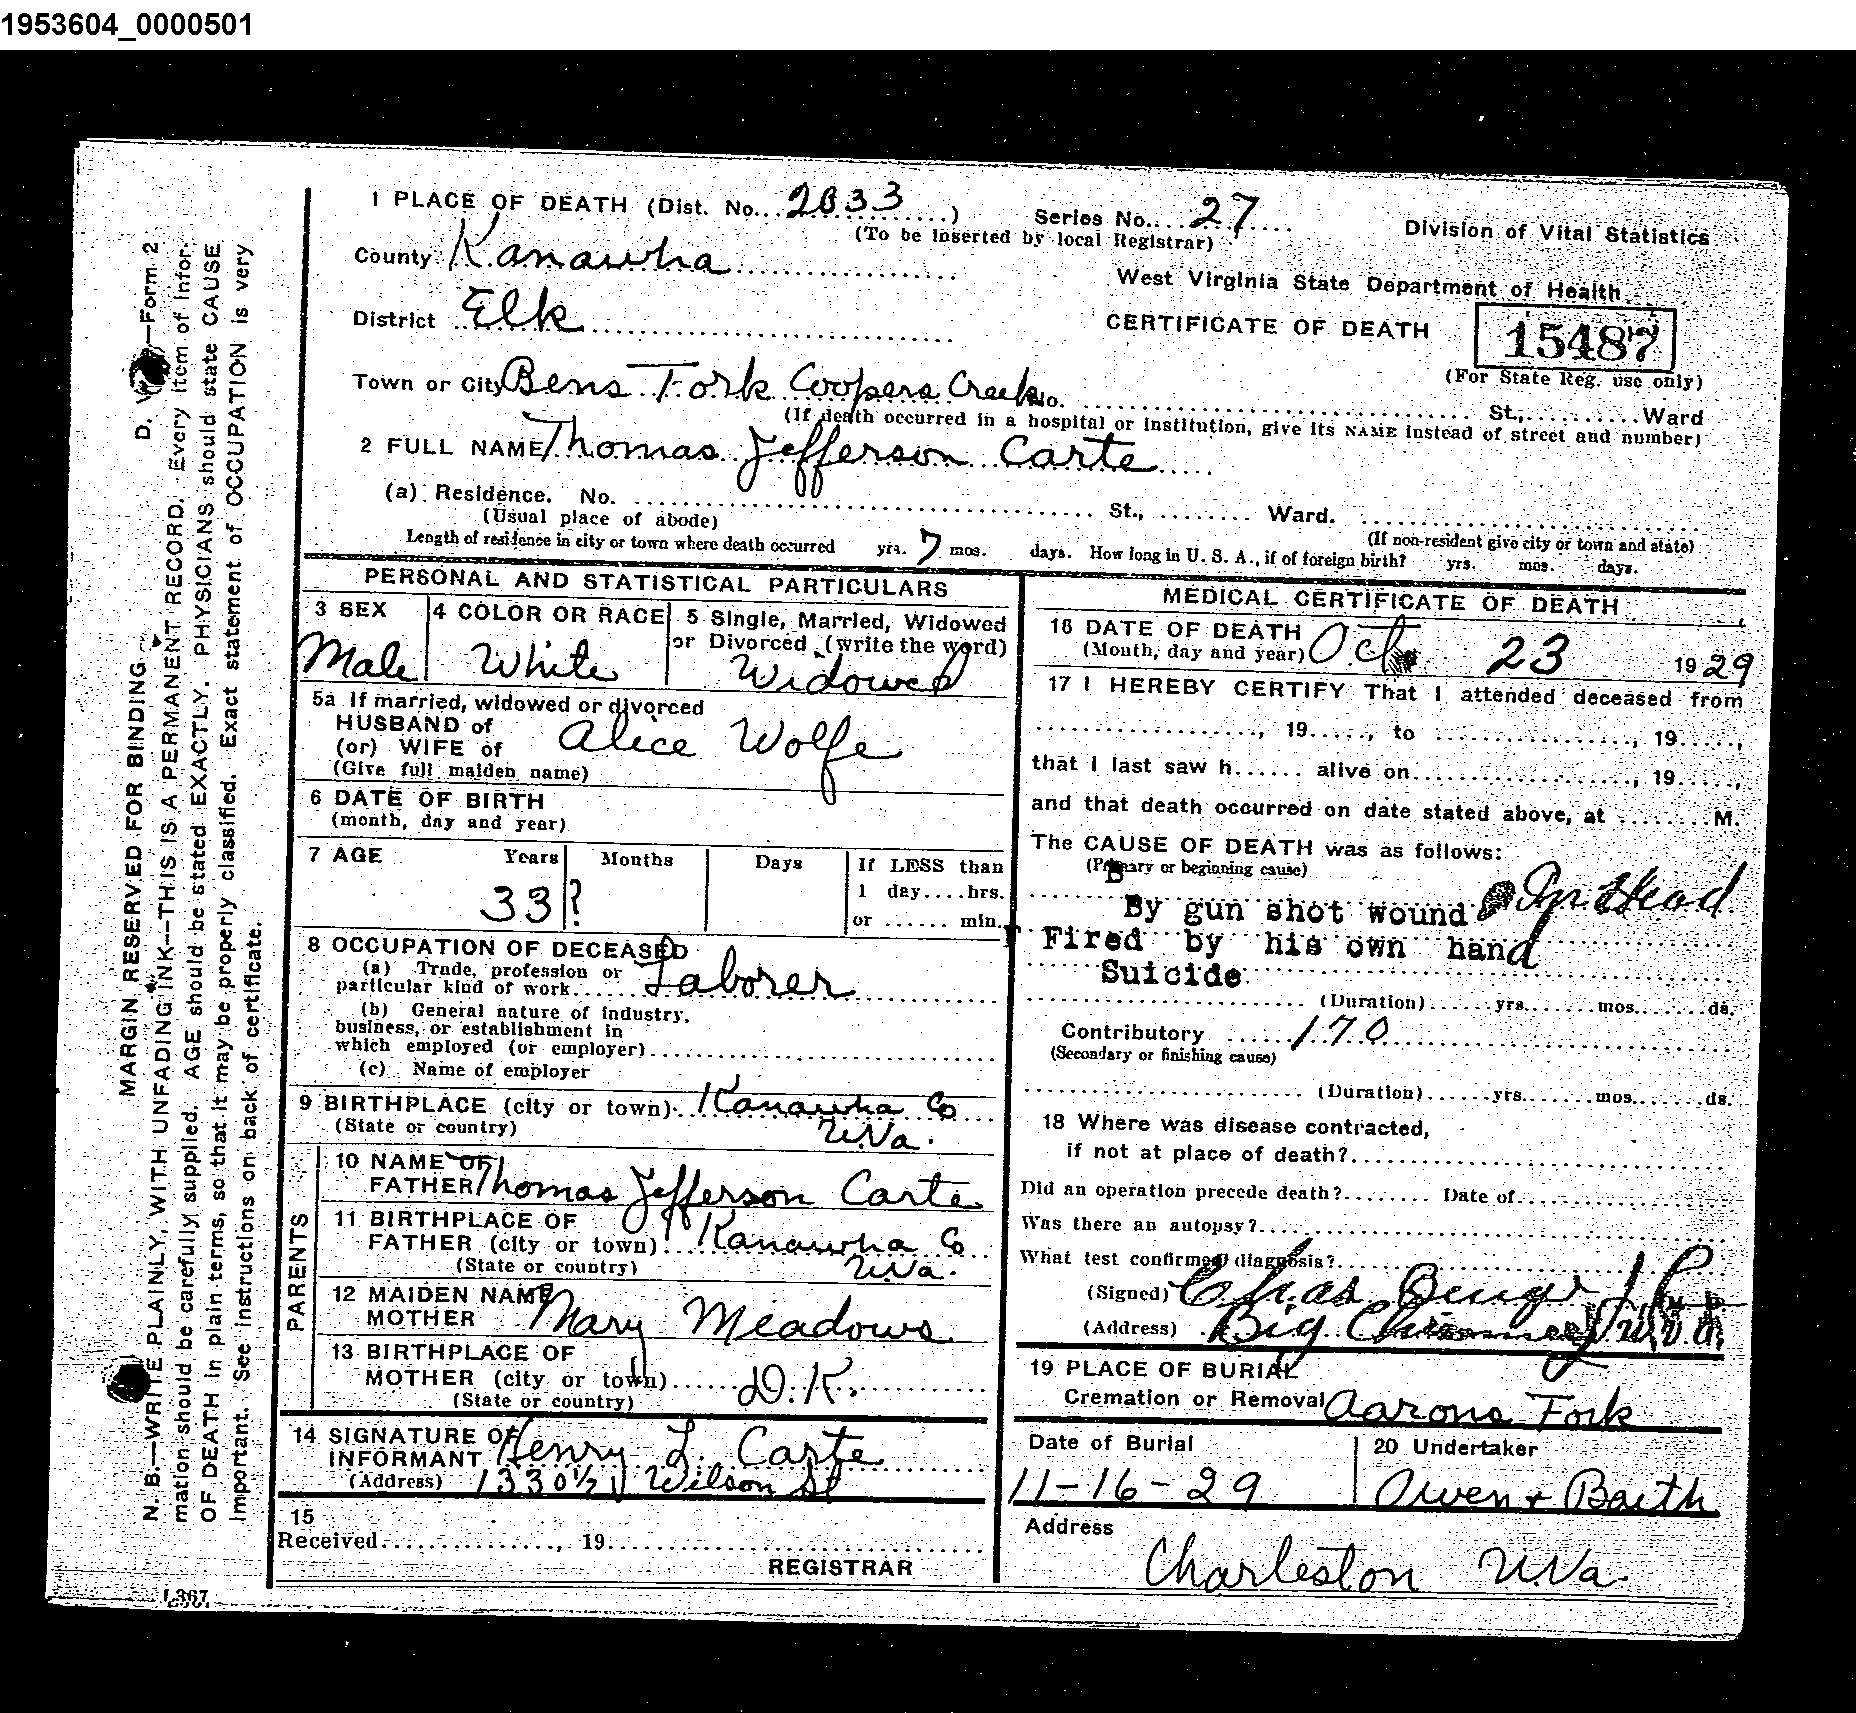 1953604_0000501
1 PLACE OF DEATH (Dist. No. 2833)
Series No. 27
(To be inserted by local Registrar)
Division of Vital Statistics
County Kanawha
West Virginia State Department of Health
District Elk
CERTIFICATE OF DEATH
15487
(For State Reg. use only)
Town or City Bens Fork Coopers Creek No. St., Ward
(If death occurred in a hospital or institution, give its NAME instead of street and number)
2 FULL NAME Thomas Jefferson Carte
(a) Residence. No. St., Ward.
(Usual place of abode)
(If non-resident give city or town and state)
Length of residence in city or town where death occurred yrs. 7 mos. days. How long in U. S. A., if of foreign birth? yrs. mos. days.
PERSONAL AND STATISTICAL PARTICULARS
3 SEX
Male
4 COLOR OR RACE
White
5 Single, Married, Widowed
or Divorced (write the word)
Widowed
5a If married, widowed or divorced
HUSBAND of
(or) WIFE of
(Give full maiden name)
Alice Wolfe
6 DATE OF BIRTH
(month, day and year)
7 AGE Years Months Days If LESS than
1 day....hrs.
or ...... min.
33 ?
8 OCCUPATION OF DECEASED
(a) Trade, profession or
particular kind of work Laborer
(b) General nature of industry,
business, or establishment in
which employed (or employer)
(c) Name of employer
9 BIRTHPLACE (city or town) Kanawha Co
(State or country) W.Va.
PARENTS
10 NAME OF
FATHER Thomas Jefferson Carte
11 BIRTHPLACE OF
FATHER (city or town) Kanawha Co
(State or country) W.Va.
12 MAIDEN NAME
MOTHER Mary Meadows
13 BIRTHPLACE OF
MOTHER (city or town) D.K.
(State or country)
14 SIGNATURE OF
INFORMANT Henry L. Carte
(Address) 1330½ Wilson St
15
Received , 19
REGISTRAR
MEDICAL CERTIFICATE OF DEATH
16 DATE OF DEATH
(Month, day and year) Oct. 23 1929
17 I HEREBY CERTIFY That I attended deceased from
, 19....., to , 19.....,
that I last saw h...... alive on , 19.....,
and that death occurred on date stated above, at ........M.
The CAUSE OF DEATH was as follows:
(Primary or beginning cause)
By gun shot wound In Head
Fired by his own hand
Suicide
(Duration) yrs. mos. ds.
Contributory 170
(Secondary or finishing cause)
(Duration) yrs. mos. ds.
18 Where was disease contracted,
if not at place of death?
Did an operation precede death? Date of
Was there an autopsy?
What test confirmed diagnosis?
(Signed) Chas
(Address) Big Chimney W.Va.
19 PLACE OF BURIAL
Cremation or Removal Aarons Fork
Date of Burial
11-16-29
20 Undertaker
Owen + Barth
Address
Charleston W.Va.
MARGIN RESERVED FOR BINDING
D. —Form 2
N. B.—WRITE PLAINLY, WITH UNFADING INK—THIS IS A PERMANENT RECORD. Every item of infor-
mation should be carefully supplied. AGE should be stated EXACTLY. PHYSICIANS should state CAUSE
OF DEATH in plain terms, so that it may be properly classified. Exact statement of OCCUPATION is very
important. See instructions on back of certificate.
L367